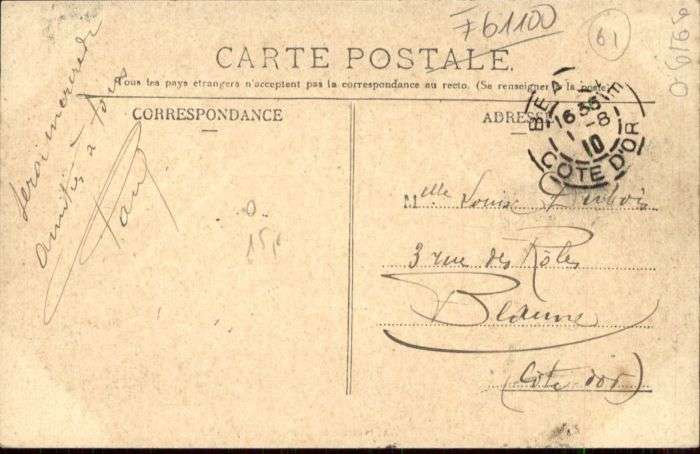 F61100
61
06166
CARTE POSTALE.
Tous les pays étrangers n'acceptent pas la correspondance au recto. (Se renseigner à la poste)
CORRESPONDANCE
ADRESSE
BEA
16 35
1-8
10
COTE D'OR
Serai mercredi
Amitiés à tous
Paul
15
Mlle Louise Dubois
3 rue des Rôles
Beaune
(Côte d'or)